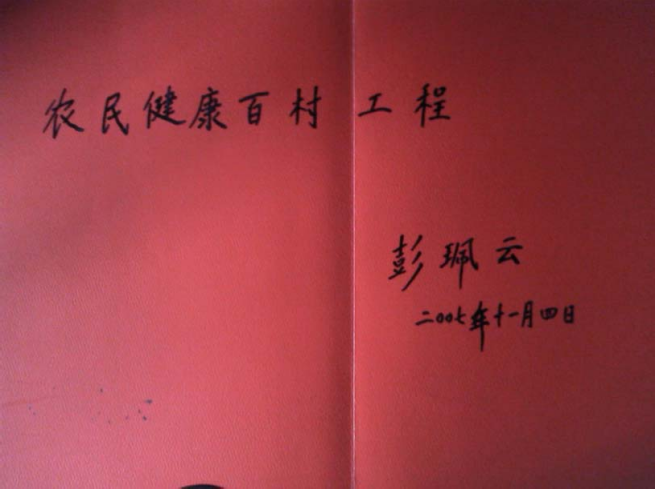 农民健康百村工程
彭珮云
二〇〇七年十一月四日